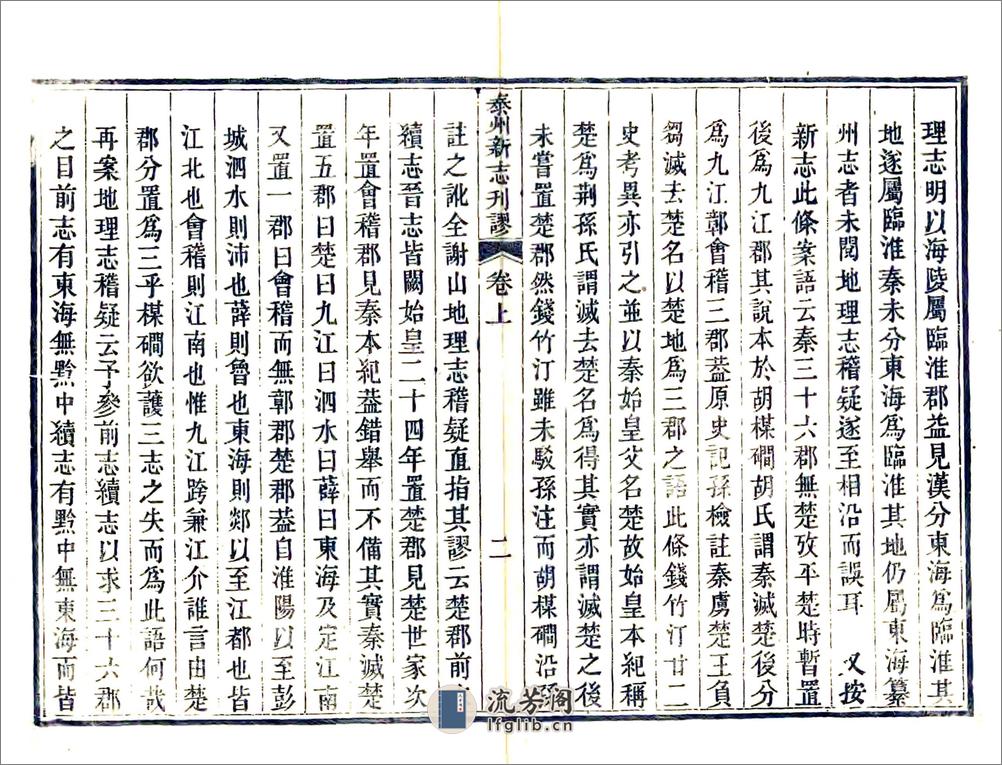 理志明以海陵屬臨淮郡葢見漢分東海爲臨淮其
地遂屬臨淮秦未分東海爲臨淮其地仍屬東海纂
州志者未閱地理志稽疑遂至相沿而誤耳 又按
新志此條案語云秦三十六郡無楚攷平楚時暫置
後爲九江郡其說本於胡楳磵胡氏謂秦滅楚後分
爲九江鄣會稽三郡葢原史記孫檢註秦虜楚王負
芻滅去楚名以楚地爲三郡之語此條錢竹汀廿二
史考異亦引之並以秦始皇父名楚故始皇本紀稱
楚爲荆孫氏謂滅去楚名爲得其實亦謂滅楚之後
未嘗置楚郡然錢竹汀雖未駁孫注而胡楳磵沿孫
泰州新志刊謬 卷上 二
註之訛全謝山地理志稽疑直指其謬云楚郡前
續志晉志皆闕始皇二十四年置楚郡見楚世家次
年置會稽郡見秦本紀葢錯舉而不備其實秦滅楚
置五郡曰楚曰九江曰泗水曰薛曰東海及定江南
又置一郡曰會稽而無鄣郡楚郡葢自淮陽以至彭
城泗水則沛也薛則魯也東海則郯以至江都也皆
江北也會稽則江南也惟九江跨兼江介誰言由楚
郡分置爲三乎楳磵欲護三志之失而爲此語何哉
再案地理志稽疑云予參前志續志以求三十六郡
之目前志有東海無黔中續志有黔中無東海而皆
流芳閣
lfglib.cn